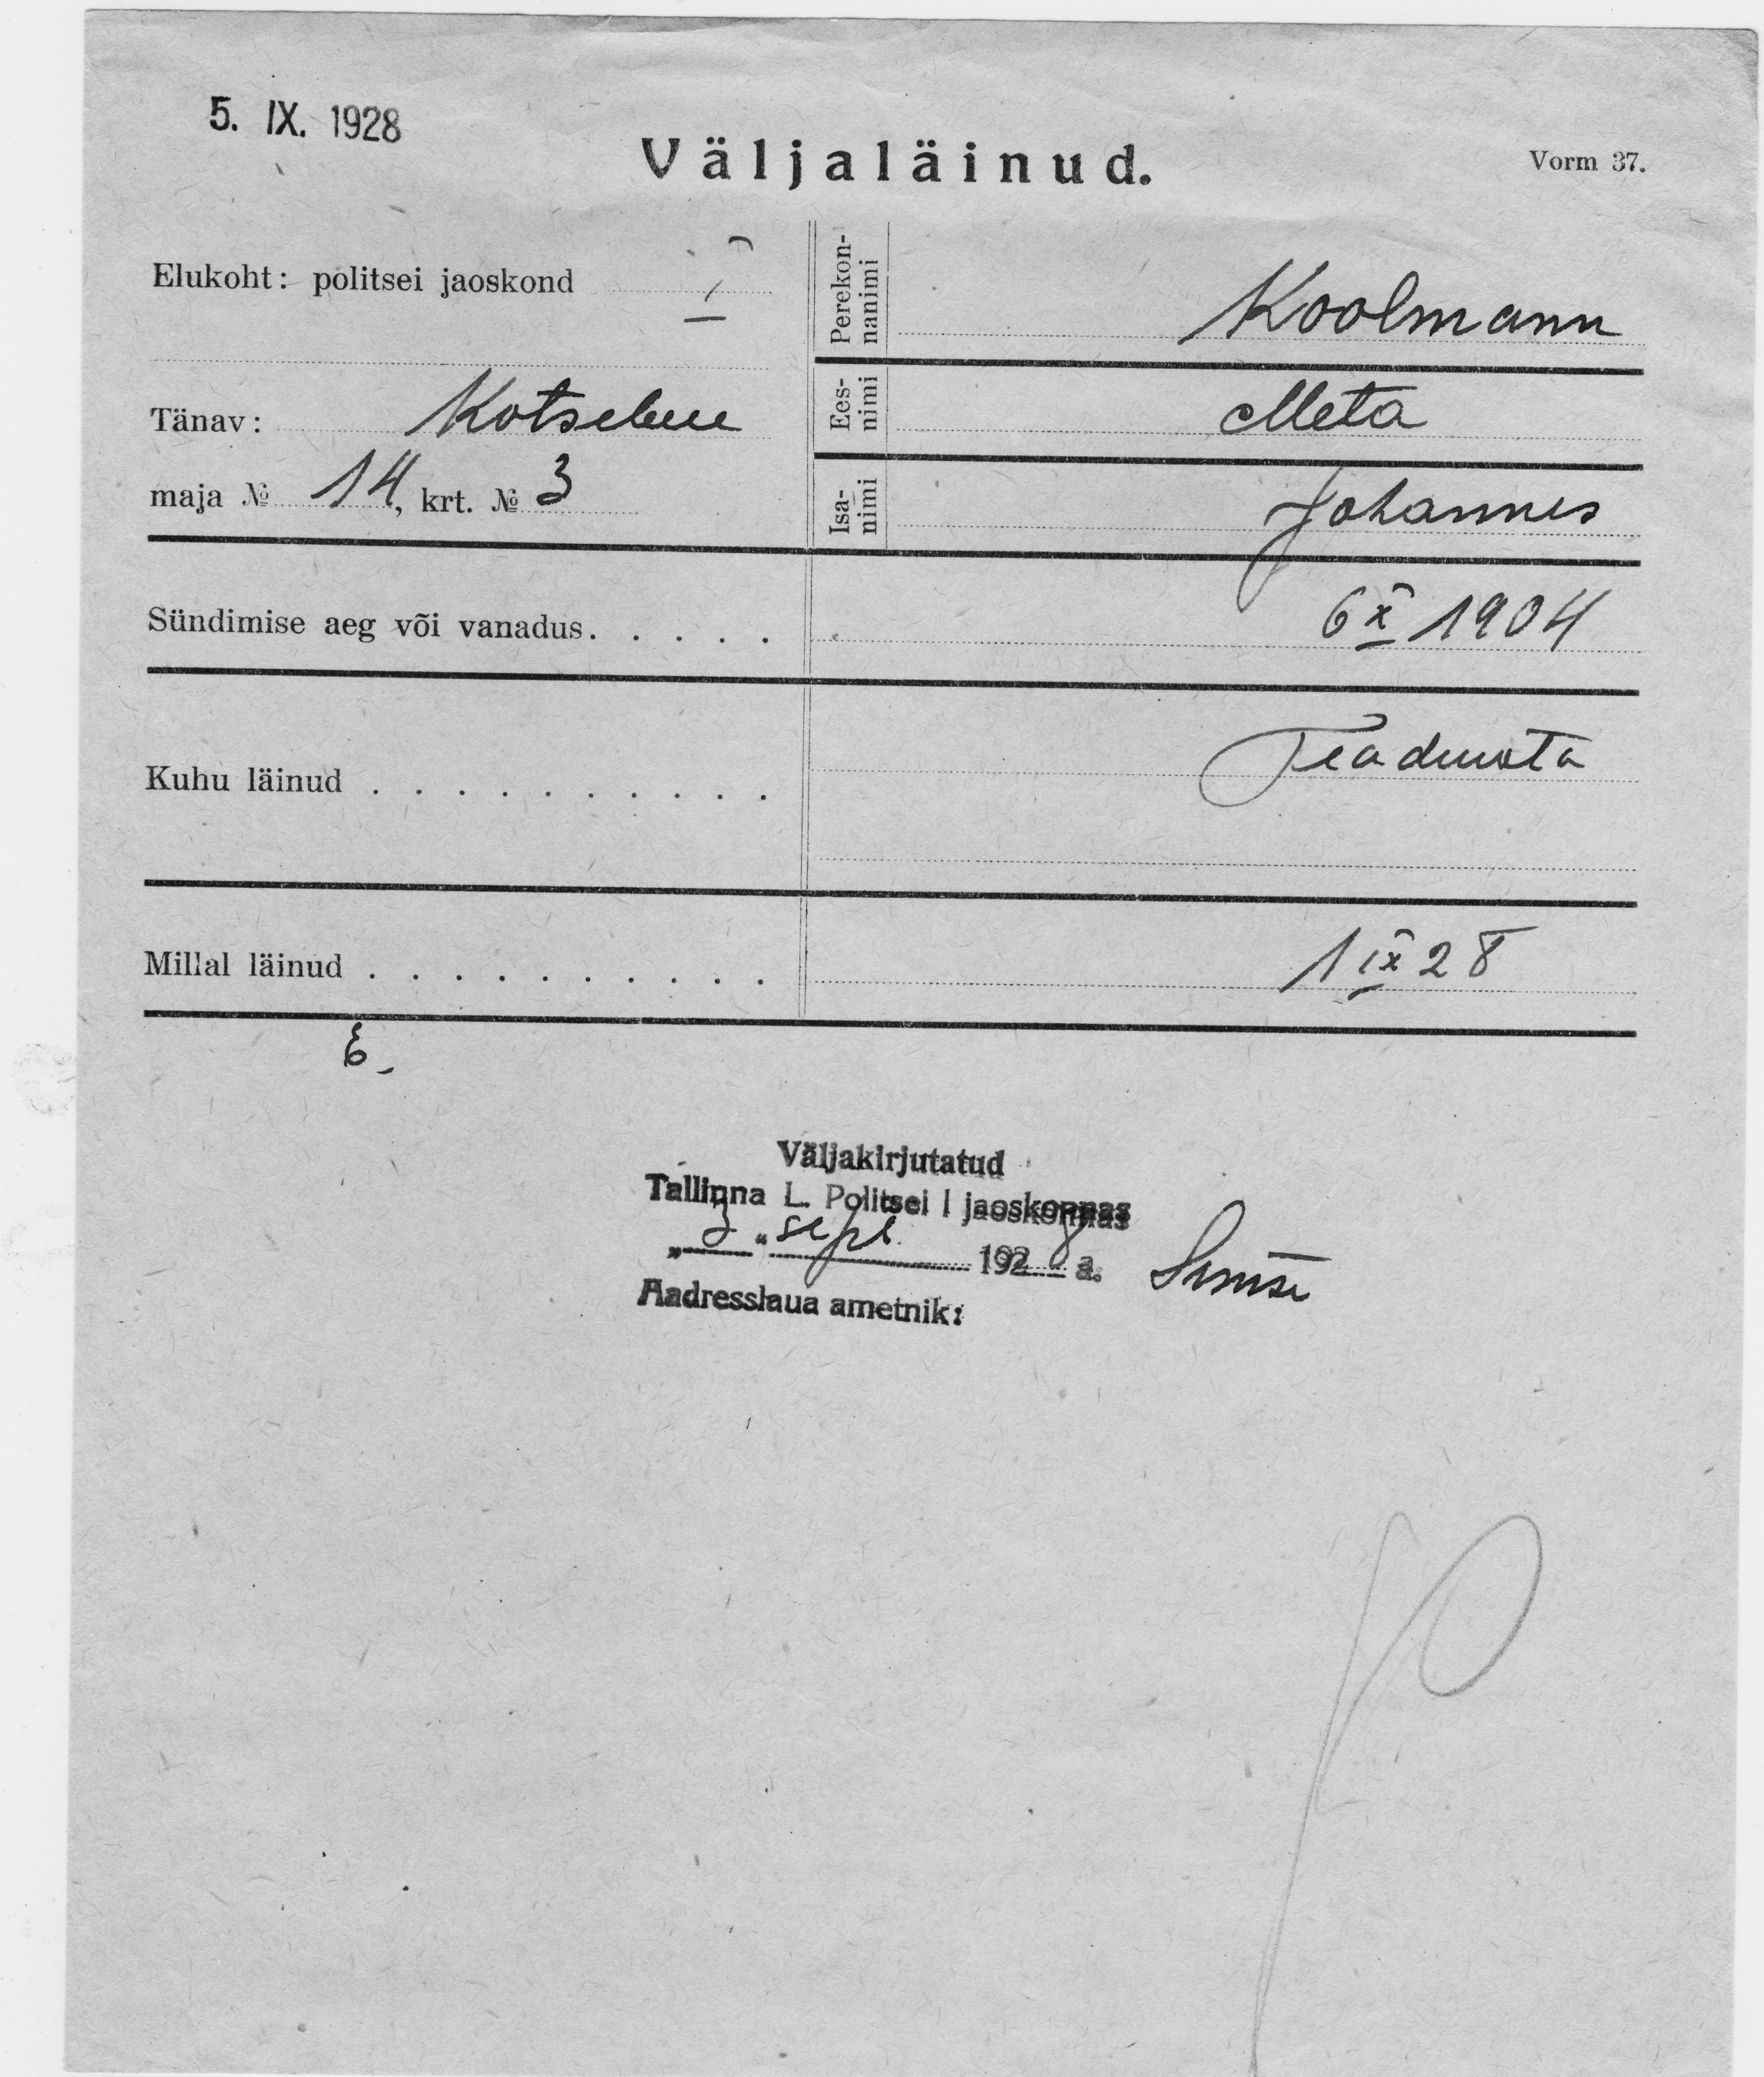 5. IX. 1928
Väljaläinud.
Vorm 37.
Elukoht: politsei jaoskond I
Perekon-
nanimi
Koolmann
Tänav: Kotsebue
Ees-
nimi
Meta
maja № 14, krt. № 3
Isa-
nimi
Johannes
Sündimise aeg või vanadus. . . . .
6 X 1904
Kuhu läinud . . . . . . . . . .
Teadmata
Millal läinud . . . . . . . . . .
1 IX 28
Väljakirjutatud
Tallinna L. Politsei I jaoskonnas
„3“ sept. 1928 a.
Aadresslaua ametnik: